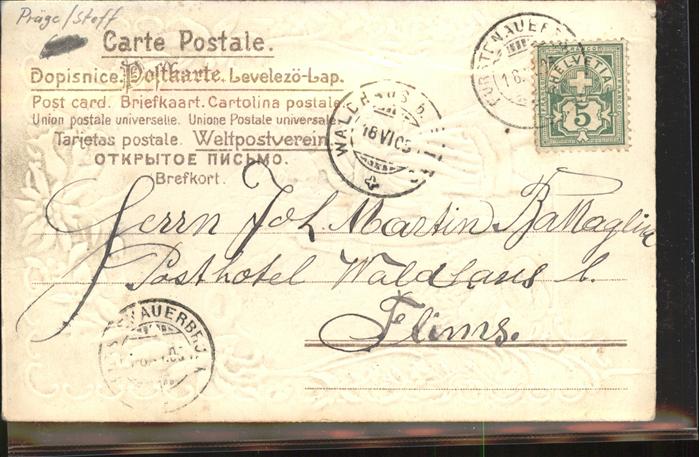 Präge/Stoff
Carte Postale.
Dopisnice. Postkarte. Levelező-Lap.
Post card. Briefkaart. Cartolina postale.
Union postale universelle. Unione Postale universale.
Tarjetas postale. Weltpostverein.
ОТКРЫТОЕ ПИСЬМО.
Brefkort.
HELVETIA
5
WALDHAUS b.
16 VI 05
Herrn Joh. Martin Battaglia
Posthotel Waldhaus b.
Flims.